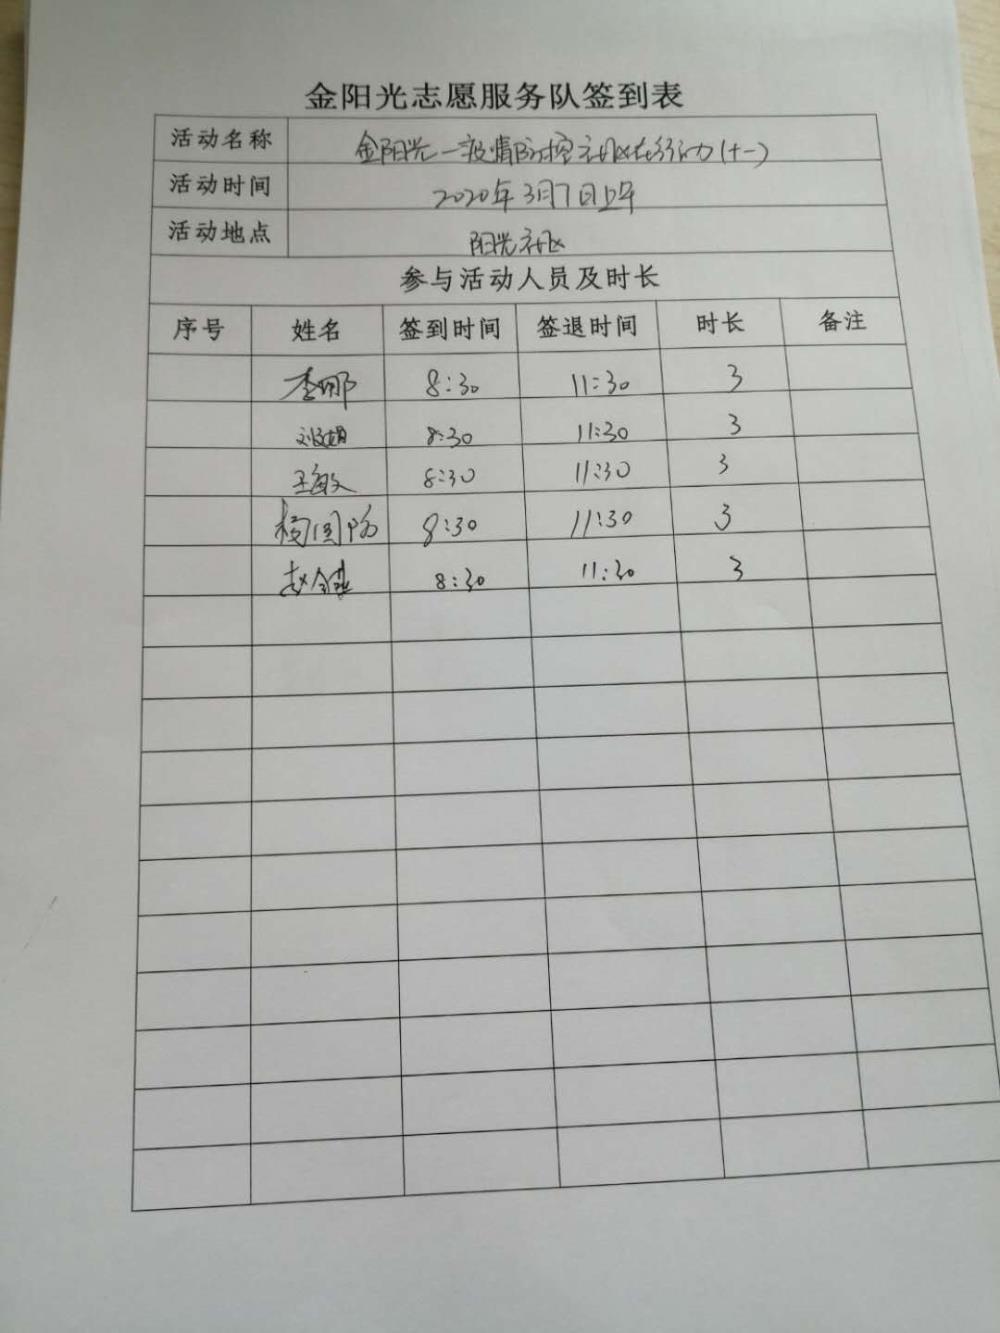 金阳光志愿服务队签到表
活动名称 金阳光—疫情防控社区在行动(十一)
活动时间 2020年3月7日上午
活动地点 阳光社区
参与活动人员及时长
序号 姓名 签到时间 签退时间 时长 备注
李娜 8:30 11:30 3
8:30 11:30 3
王敏 8:30 11:30 3
杨国防 8:30 11:30 3
赵金燕 8:30 11:30 3